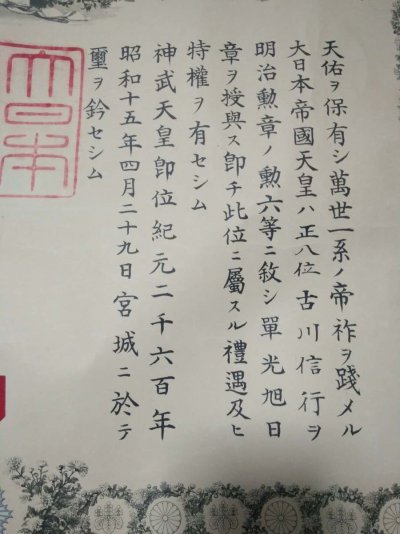 天佑ヲ保有シ萬世一系ノ帝祚ヲ踐メル
大日本帝國天皇ハ正八位古川信行ヲ
明治勲章ノ勲六等ニ敘シ單光旭日
章ヲ授與ス卽チ此位ニ屬スル禮遇及ヒ
特權ヲ有セシム
神武天皇卽位紀元二千六百年
昭和十五年四月二十九日宮城ニ於テ
璽ヲ鈐セシム
大日本